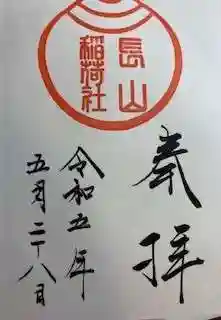 長山
稲荷社
奉拝
令和五年
五月二十八日